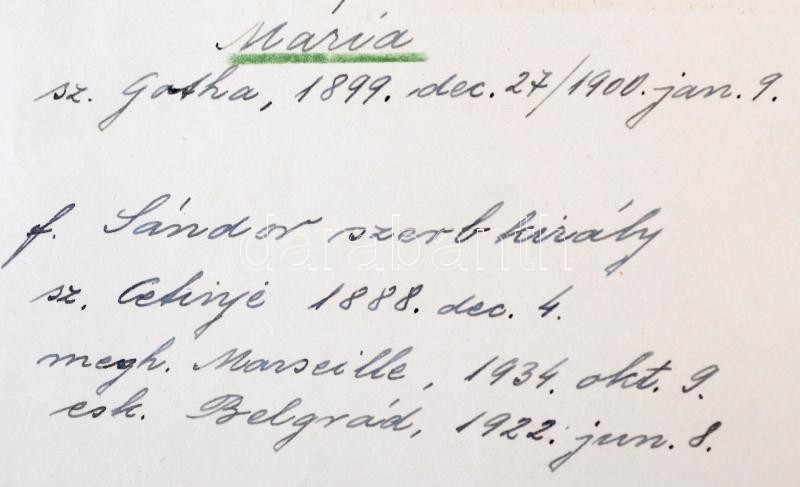 Mária
sz. Gotha, 1899. dec. 27/1900. jan. 9.
f. Sándor szerb király
darabanth
sz. Cetinjé 1888. dec. 4.
megh. Marseille, 1934. okt. 9.
esk. Belgrád, 1922. jun. 8.